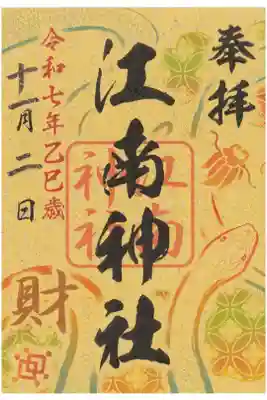 奉拝
江南神社
江南神社
令和七年乙巳歳
十一月二日
財